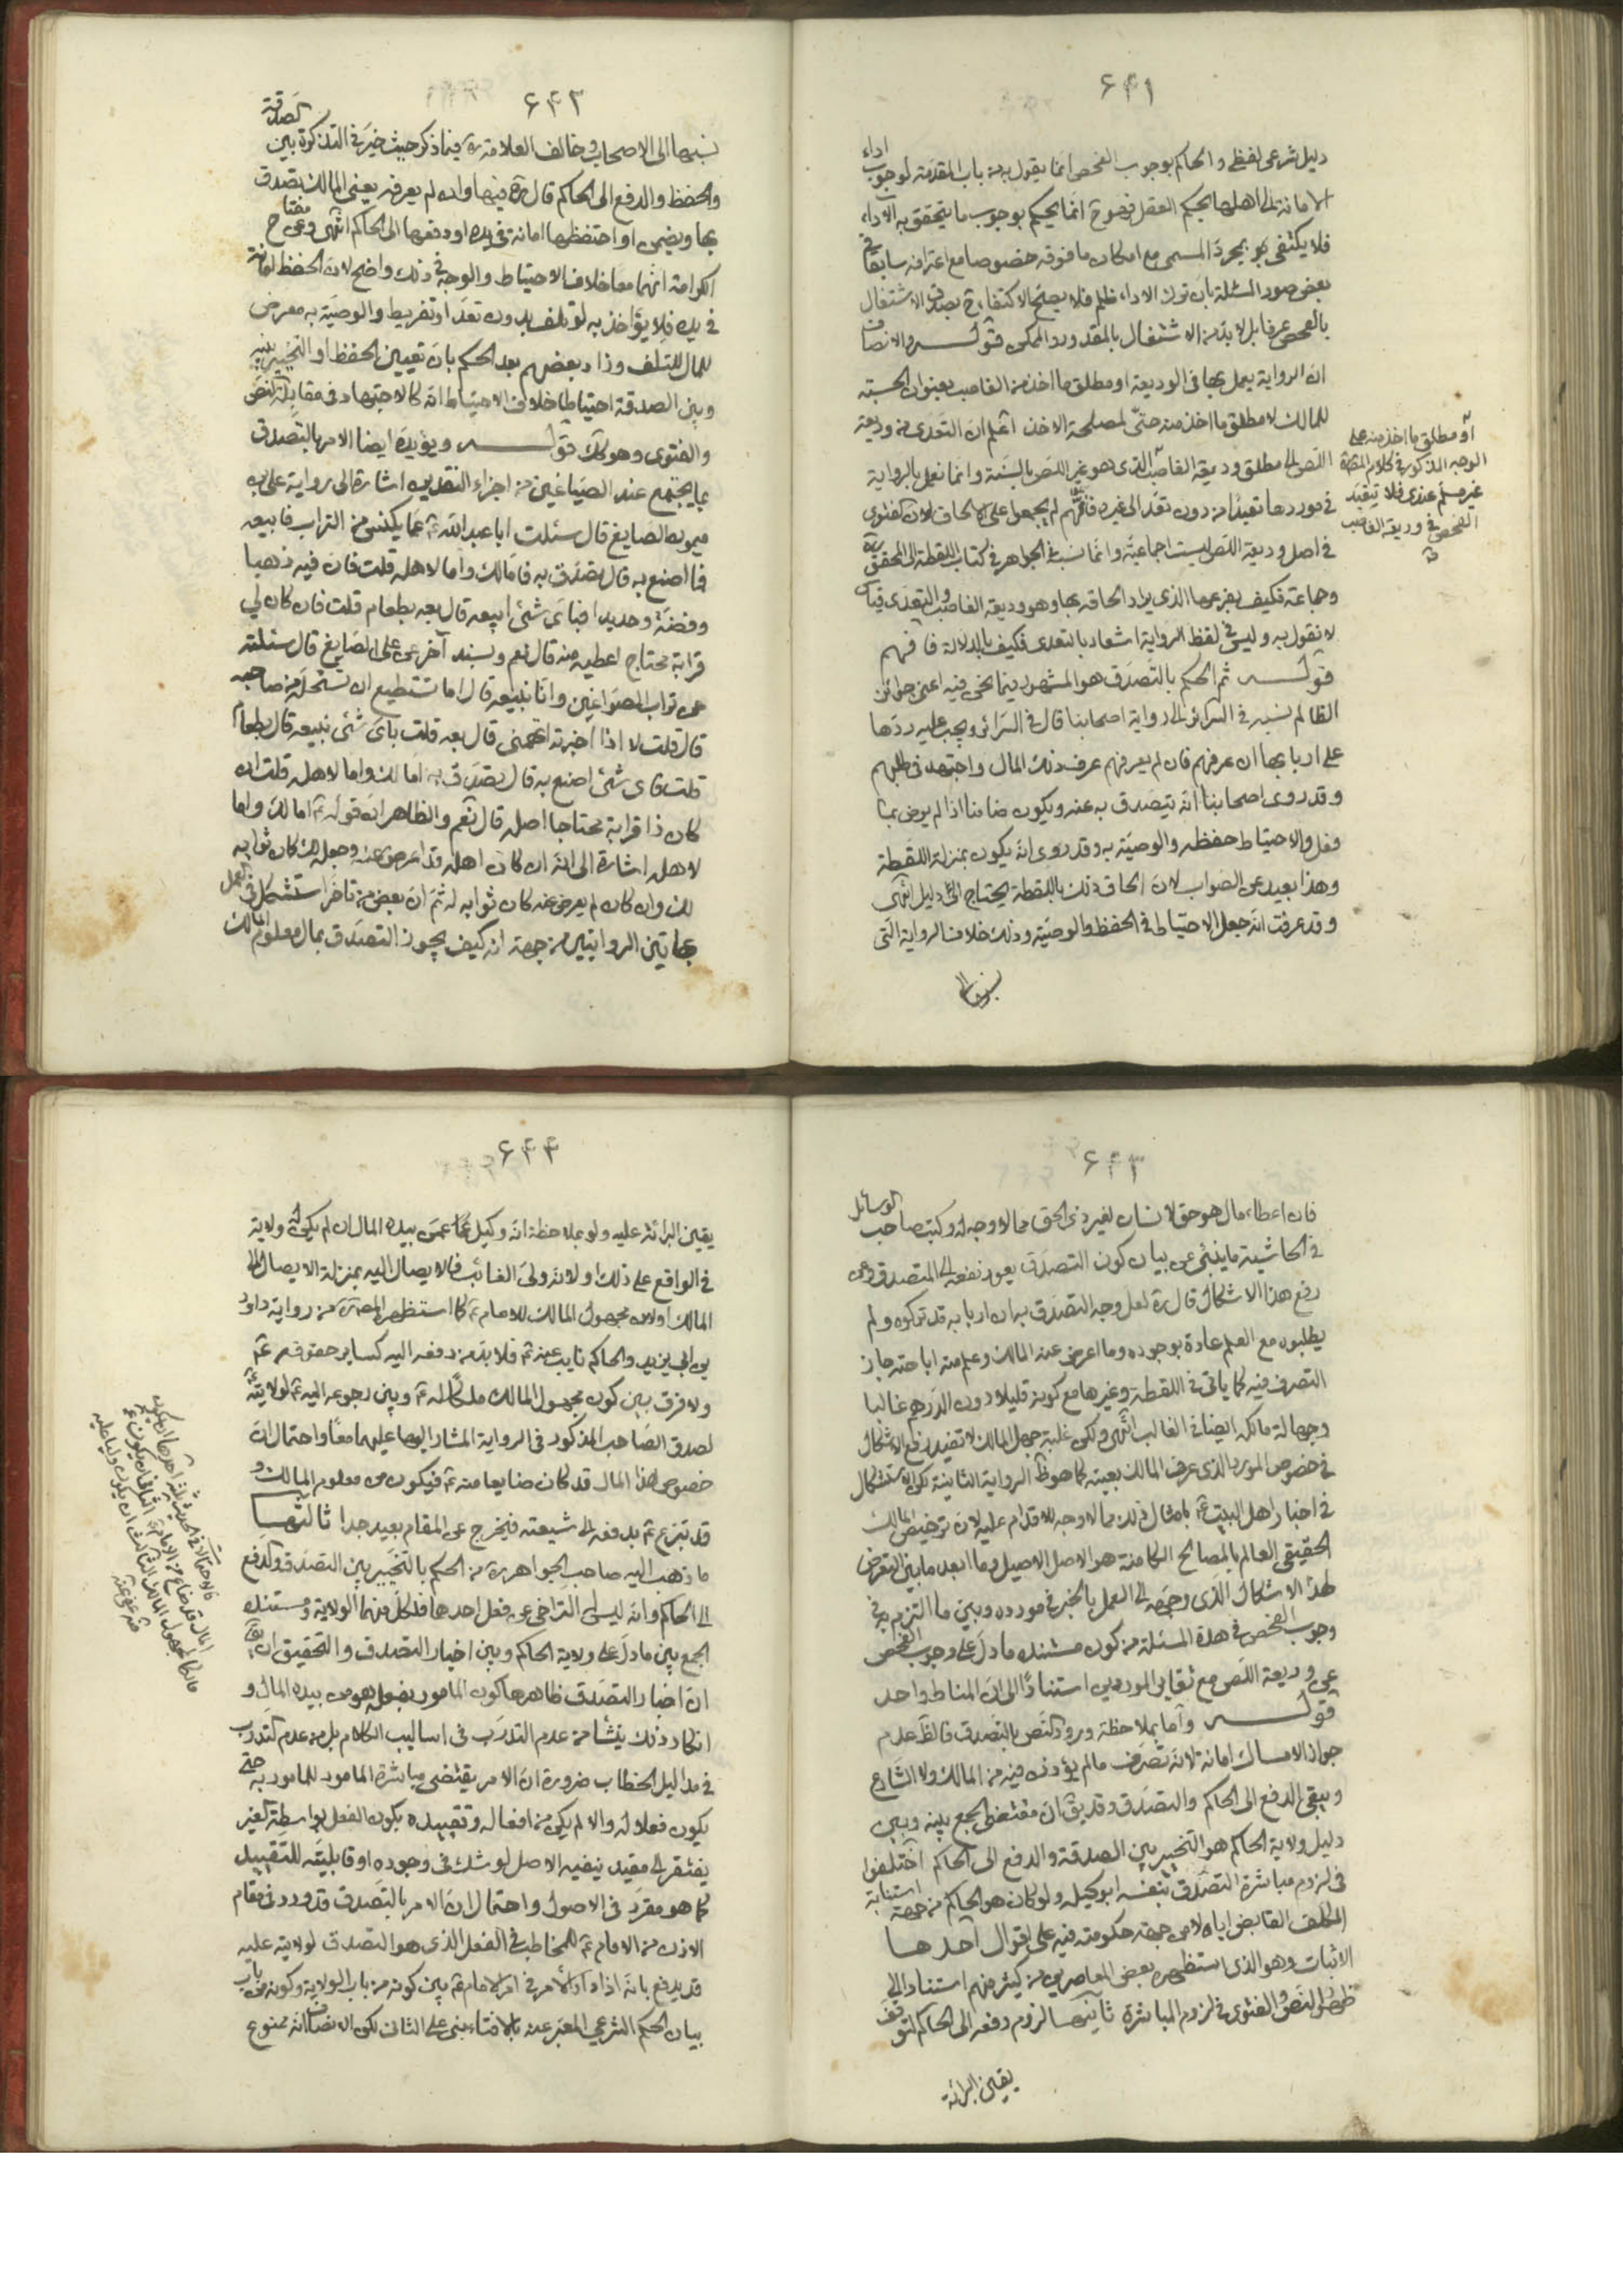 ۶۴۱
دليل شرعى لفظى والحاكم بوجوب الفحص انما يقول به من باب المقدمة لوجوب اداء
الامانة الى اهلها بحكم العقل فهو ح انما يحكم بوجوب ما يتحقق به الاداء
فلا يكتفى هو بمجرد المسمى مع امكان ما فوقه خصوصا مع اعترافه سابقا فى
بعض صور المسئلة بان ترك الاداء ظلم فلا يصح الاكتفاء ح بصدق الاشتغال
بالفحص عرفا بل لا بد من الاشتغال بالمقدور والممكن قوله والانصاف
ان الرواية يعمل بها فى الوديعة او مطلق ما اخذ من الغاصب بعنوان الحسبة
للمالك لا مطلق ما اخذ منه حتى لمصلحة الاخذ اعلم ان التعدى من وديعة
اللص الى مطلق وديعة الغاصب الذى هو غير اللص بالسنة وانما نعمل بالرواية
فى موردها تعبدا من دون تعد الى غيره فانهم لم يجمعوا على الالحاق لان الفتوى
فى اصل وديعة اللص ليست اجماعية وانما نسب فى الجواهر فى كتاب اللقطة الى المحقق ره
وجماعة فكيف بفرعها الذى يراد الحاقه بها وهو وديعة الغاصب والتعدى قياس
لا نقول به وليس فى لفظ الرواية اشعار بالتعدى فكيف بالدلالة فافهم
قوله ثم الحكم بالتصدق هو المشهور فيما نحن فيه اعنى جوائز
الظالم نسبه فى السرائر الى رواية اصحابنا قال فى السرائر ويجب عليه ردها
على اربابها ان عرفهم فان لم يعرفهم عرف ذلك المال واجتهد فى طلبهم
وقد روى اصحابنا انه يتصدق به عنه ويكون ضامنا اذا لم يرض بما
فعل والاحتياط حفظه والوصية به وقد روى انه يكون بمنزلة اللقطة
وهذا بعيد عن الصواب لان الحاق ذلك باللقطة يحتاج الى دليل انتهى
وقد عرفت انه جعل الاحتياط فى الحفظ والوصية وذلك خلاف الرواية التى
نسبها الى
او مطلق ما اخذ منه على
الوجه المذكور فى كلام المصنف
غير مسلم عندى فلا يتقيد
الفحص فى وديعة الغاصب
۶۴۲
نسبها الى الاصحاب وخالف العلامة ره فيما ذكر حيث خير فى التذكرة بين الصدقة
والحفظ والدفع الى الحاكم قال ره فيها وان لم يعرفه يعنى المالك تصدق
بها ويضمن او احتفظها امانة فى يده او دفعها الى الحاكم انتهى وعن مفتاح
الكرامة انهما معا خلاف الاحتياط والوجه فى ذلك واضح لان الحفظ امانة
فى يده فلا يؤاخذ به لو تلف بدون تعد او تفريط والوصية به معرض
للمال للتلف وزاد بعضهم بعد الحكم بان تعيين الحفظ او التخيير بينه
وبين الصدقة احتياطا خلاف الاحتياط انه كالاجتهاد فى مقابلة النص
والفتوى وهو كك قوله ويؤيده ايضا الامر بالتصدق
بما يجتمع عند الصياغين من اجزاء النقدين اشارة الى رواية على بن
ميمون الصايغ قال سئلت ابا عبد الله ع عما يكنس من التراب فابيعه
فما اصنع به قال تصدق به فاما لك واما لاهله قلت فان فيه ذهبا
وفضة وحديدا فباى شئ ابيعه قال بعه بطعام قلت فان كان لى
قرابة محتاج اعطيه منه قال نعم وبسند آخر عن على الصايغ قال سئلته
عن تراب الصواغين وانا نبيعه قال اما تستطيع ان تستحله من صاحبه
قال قلت لا اذا اخبرته اتهمنى قال بعه قلت باى شئ نبيعه قال بطعام
قلت فاى شئ اصنع به قال تصدق به اما لك واما لاهله قلت ان
كان ذا قرابة محتاجا اصله قال نعم والظاهر ان قوله ع اما لك واما
لاهله اشارة الى انه ان كان اهله قد اعرض عنه وجعله لك كان ثوابه
لك وان كان لم يعرض عنه كان ثوابه له ثم ان بعض من تاخر استشكل فى العمل
بهاتين الروايتين من جهة انه كيف يجوز التصدق بمال معلوم المالك
۶۴۳
فان اعطاء مال هو حق لانسان لغير ذى الحق مما لا وجه له وكتب صاحب الوسائل
فى الحاشية ما ينبئ عن بيان كون التصدق يعود نفعه الى المتصدق وعن
رفع هذا الاشكال قال ره لعل وجه التصدق به ان اربابه قد تركوه ولم
يطلبوه مع العلم عادة بوجوده وما اعرض عنه المالك وعلم منه اباحته جاز
التصرف فيه كما ياتى فى اللقطة وغيرها مع كونه قليلا دون الدرهم غالبا
وجهالة مالكه ايضا فى الغالب انتهى ولكن غلبة جهل المالك لا تفيد رفع الاشكال
فى خصوص المورد الذى عرف المالك بعينه كما هو ظ الرواية الثانية لكن الاستشكال
فى اخبار اهل البيت ع بامثال ذلك مما لا وجه للاقدام عليه لان ترخيص المالك
الحقيقى العالم بالمصالح الكامنة هو الاصل الاصيل وما ابعد ما بين التعرض
لهذا الاشكال الذى وجهه الى العمل بالخبر فى مورده وبين ما التزم به فى
وجوب الفحص فى هذه المسئلة من كون مستنده ما دل على وجوب الفحص
عن وديعة اللص مع تغاير الموردين استنادا الى ان المناط واحد
قوله واما بملاحظة ورود النص بالتصدق فالظ عدم
جواز الامساك امانة لانه تصرف ما لم يؤذن فيه من المالك ولا الشارع
ويبقى الدفع الى الحاكم والتصدق وقد يق ان مقتضى الجمع بينه وبين
دليل ولاية الحاكم هو التخيير بين الصدقة والدفع الى الحاكم اختلفوا
فى لزوم مباشرة التصدق بنفسه او بوكيله ولو كان هو الحاكم من جهة استنابة
المكلف القابض اياه لا من جهة حكومته فيه على اقوال احدها
الاثبات وهو الذى استظهره بعض المعاصرين من كثير منهم استنادا الى
ظهور النص والفتوى فى لزوم المباشرة ثانيها لزوم دفعه الى الحاكم لتوقف
يقين البرائة
۶۴۴
يقين البرائة عليه ولو بملاحظة انه وكيل عمن بيده المال ان لم يكن له ولاية
فى الواقع على ذلك او لانه ولى الغائب فالايصال اليه بمنزلة الايصال الى
المالك او لان مجهول المالك للامام ع كما استظهره المصنف ره من رواية داود
بن ابى يزيد والحاكم نايب عنه ع فلا بد من دفعه اليه كساير حقوقه ع
ولا فرق بين كون مجهول المالك ملكا له ع وبين رجوعه اليه ع لولايته
لصدق الصاحب المذكور فى الرواية المشار اليها عليهما معا واحتمال ان
خصوص هذا المال قد كان ضايعا منه ع فيكون من معلوم المالك و
قد تبرع ع بدفعه الى شيعته فيخرج عن المقام بعيد جدا ثالثها
ما ذهب اليه صاحب الجواهر ره من الحكم بالتخيير بين التصدق والدفع
الى الحاكم وانه ليس له التراخى عن فعل احدهما فلكل منهما الولاية ومستنده
الجمع بين ما دل على ولاية الحاكم وبين اخبار التصدق والتحقيق ان يق
ان اخبار التصدق ظاهرها كون المامور بفعله هو من بيده المال و
انكار ذلك ينشأ من عدم التدرب فى اساليب الكلام بل من عدم التدرب
فى مداليل الخطاب ضرورة ان الامر يقتضى مباشرة المامور للمامور به حتى
يكون فعلا له والا لم يكن من افعاله وتقييده بكون الفعل بواسطة الغير
يفتقر الى مقيد ينفيه الاصل لو شك فى وجوده او قابليته للتقييد
كما هو مقرر فى الاصول واحتمال ان الامر بالتصدق قد ورد فى مقام
الاذن من الامام ع للمخاطب فى الفعل الذى هو التصدق لولايته عليه
قد يدفع بانه اذا دار الامر فى امر الامام ع بين كونه من باب الولاية وكونه من باب
بيان الحكم الشرعى المعبر عنه بالافتاء بنى على الثانى لكن الانصاف انه ممنوع